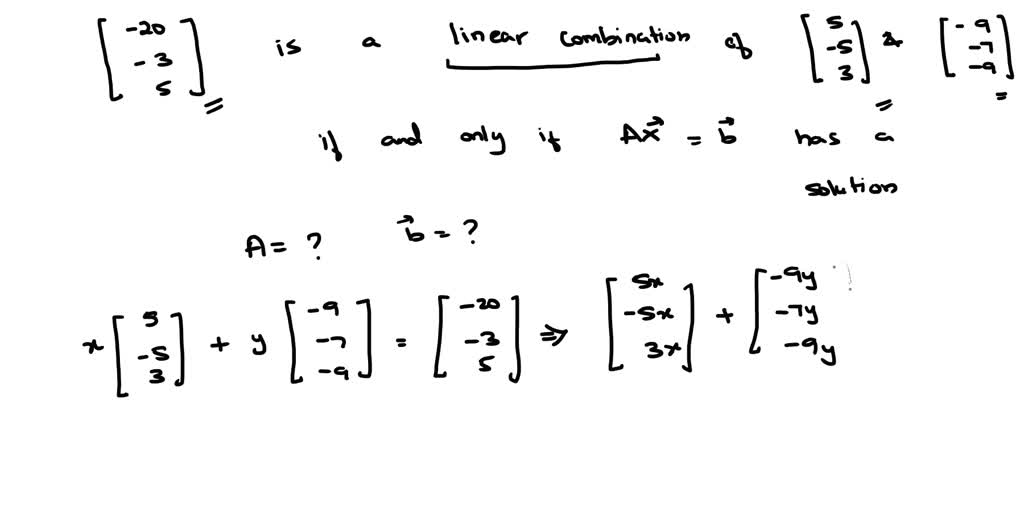 [-20 -3 5] is a linear combination of [5 -5 3] & [-9 -7 -9]
if and only if Ax⃗ = b⃗ has a
solution
A = ? b⃗ = ?
x [5 -5 3] + y [-9 -7 -9] = [-20 -3 5] ⇒ [5x -5x 3x] + [-9y -7y -9y]